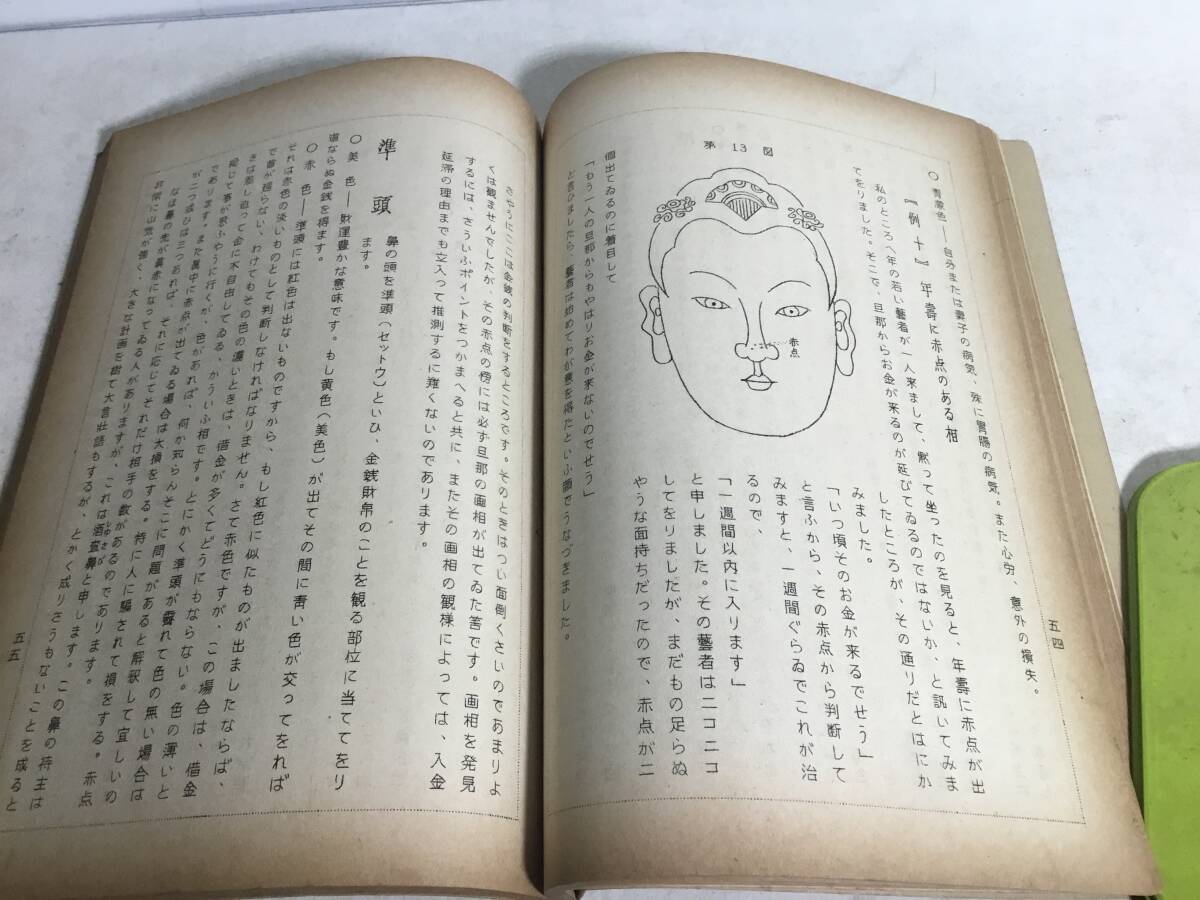 五四
〇 青蒙色――自分または妻子の病気、殊に胃腸の病気。また心労、意外の損失。
『例十』 年壽に赤点のある相
私のところへ年の若い藝者が一人来まして、黙って坐ったのを見ると、年壽に赤点が出
てをりました。そこで、旦那からお金が来るのが延びてゐるのではないか、と訊いてみま
したところが、その通りだとはにか
みました。
「いつ頃そのお金が来るでせう」
と言ふから、その赤点から判断して
みますと、一週間ぐらゐでこれが治
るので、
「一週間以内に入ります」
と申しました。その藝者はニコニコ
してをりましたが、まだもの足らぬ
やうな面持ちだったので、赤点が二
第13図
赤点
個出てゐるのに着目して
「もう一人の旦那からもやはりお金が来ないのでせう」
と言ひましたら、藝者は始めてわが意を得たといふ顔でうなづきました。
さやうにここは金銭の判断をするところです。そのときはつい面倒くさいのであまりよ
くは観ませんでしたが、その赤点の傍には必ず旦那の画相が出てゐた筈です。画相を発見
するには、さういふポイントをつかまへると共に、またその画相の観様によっては、入金
延滞の理由までも立入って推測するに難くないのであります。
準頭
鼻の頭を準頭(ゼットウ)といひ、金銭財帛のことを観る部位に当ててをり
ます。
〇 美 色――財運豊かな意味です。もし黄色(美色)が出てその間に青い色が交ってをれば
道ならぬ金銭を得ます。
〇 赤 色――準頭には紅色は出ないものですから、もし紅色に似たものが出ましたならば、
それは赤色の淡いものとして判断しなければなりません。さて赤色ですが、この場合は、借金
で首が廻らない、わけてもその色の濃いときは、借金が多くてどうにもならない。色の薄いと
きは差し迫って金に不自由してゐる、かういふ相です。とにかく準頭が霽れて色の無い場合は
総じて事が思ふやうに行くが、色があれば、何か知らんそこに問題があると解釈して宜しいの
であります。また眞中に赤点が出てゐる場合は大損をする。特に人に騙されて損をする。赤点
が二つ或ひは三つあれば、それに応じてそれだけ相手の数があるのであります。
なほ鼻の先が真赤になってゐる人がありますが、これは酒査鼻と申します。この鼻の持主は
非常に山気が強く、大きな計画を樹て大言壮語もするが、とかく成りさうもないことを成ると
五五